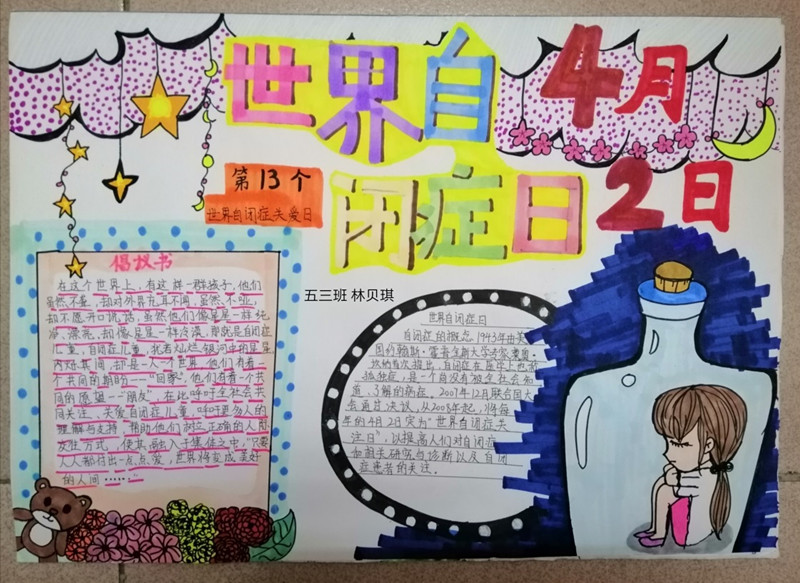 世界自
闭症日
4月
2日
第13个
世界自闭症关爱日
倡议书
在这个世界上，有这样一群孩子，他们
虽然不聋，却对外界充耳不闻，虽然不哑，
却不愿开口说话，虽然他们像星星一样纯
净、漂亮，却像星星一样冷漠，那就是自闭症
儿童，自闭症儿童，犹若灿烂银河中的星星
闪烁其间，却是一人一世界，他们有着一
个共同的期盼——“回家”，他们有着一个共
同的愿望——“朋友”，在此呼吁全社会共
同关注、关爱自闭症儿童，呼吁更多人的
理解与支持，帮助他们树立正确的人际
交往方式，使其融入于集体之中，“只要
人人都付出一点点爱，世界将变成美好
的人间……”
五三班 林贝琪
世界自闭症日
自闭症的概念 1943年由美
国约翰斯·霍普金斯大学专家莱昂·
坎纳首次提出，自闭症在医学上也称
孤独症，是一个尚没有被全社会知
道、了解的病症。2007年12月联合国大
会通过决议，从2008年起，将每
年的4月2日定为“世界自闭症关
注日”，以提高人们对自闭症
和相关研究与诊断以及自闭
症患者的关注。